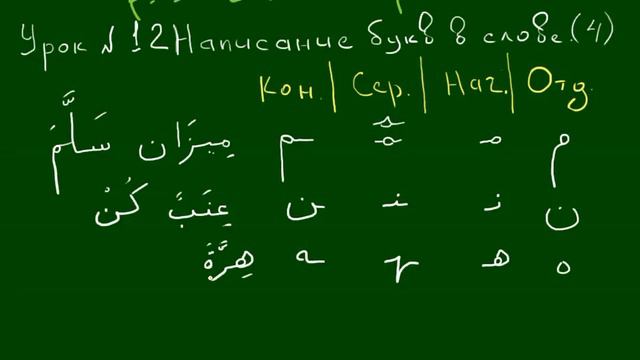 Урок №12 Написание букв в слове. (4)
Кон. | Сер. | Нач. | Отд.
م مـ ـمـ ـم مِيزَان سَلَّمَ
ن نـ ـنـ ـن عِنَبٌ كُنْ
ه هـ ـهـ ـه هِرَّةٌ